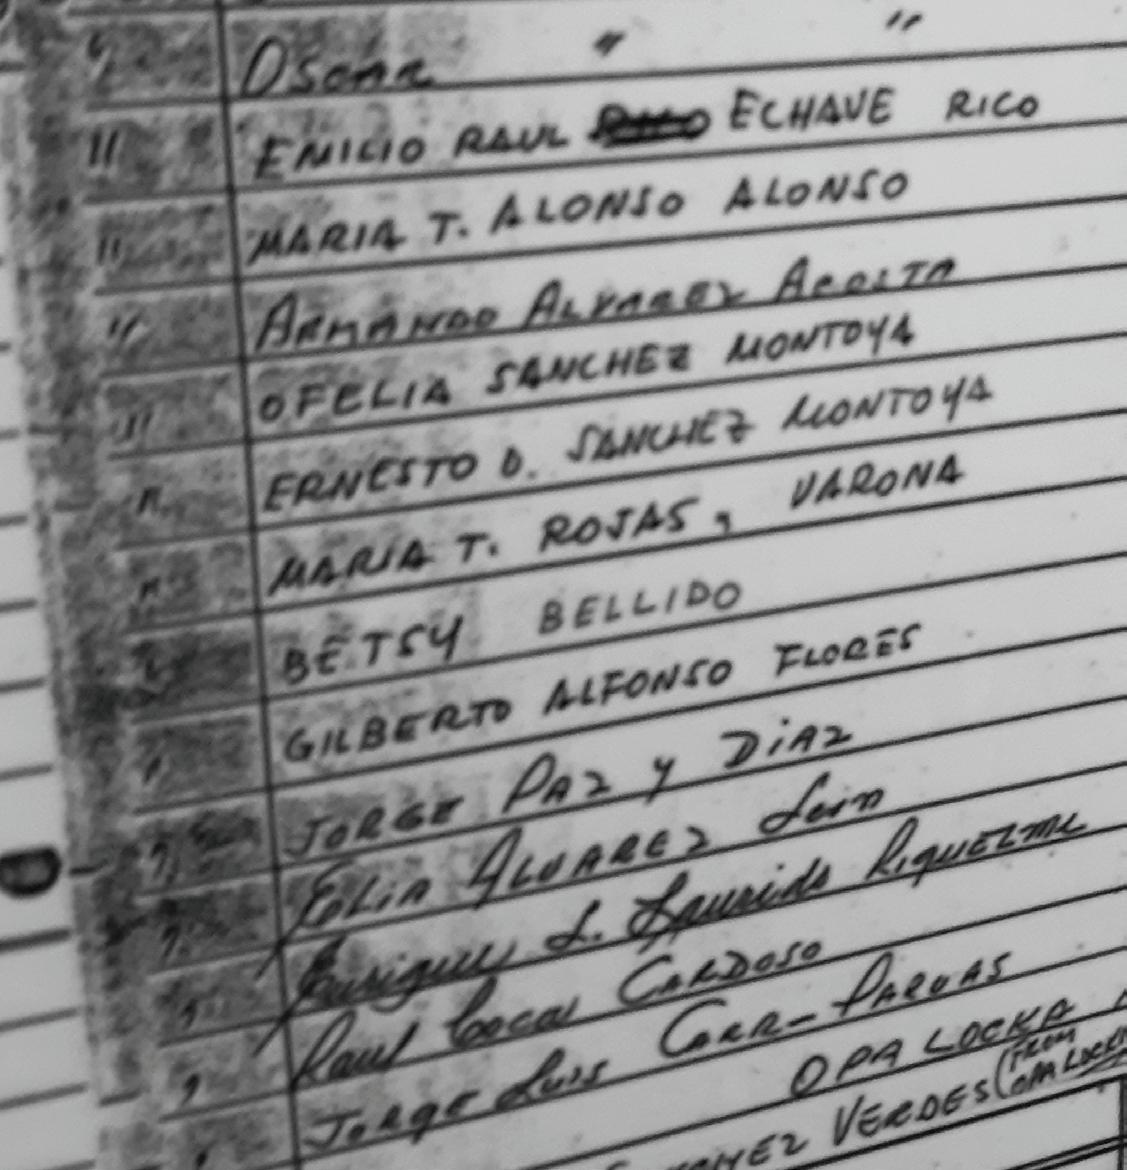 " Oscar " "
" EMILIO RAUL ECHAVE RICO
" MARIA T. ALONSO ALONSO
" ARMANDO ALVAREZ ACOSTA
" OFELIA SANCHEZ MONTOYA
" ERNESTO D. SANCHEZ MONTOYA
" MARIA T. ROJAS, VARONA
" BETSY BELLIDO
" GILBERTO ALFONSO FLORES
" JORGE PAZ Y DIAZ
" ALVAREZ
" L. RIQUELME
" Raul CARDOSO
" JORGE Luis
OPA LOCKA
VERDES (FROM
OPA LOCKA